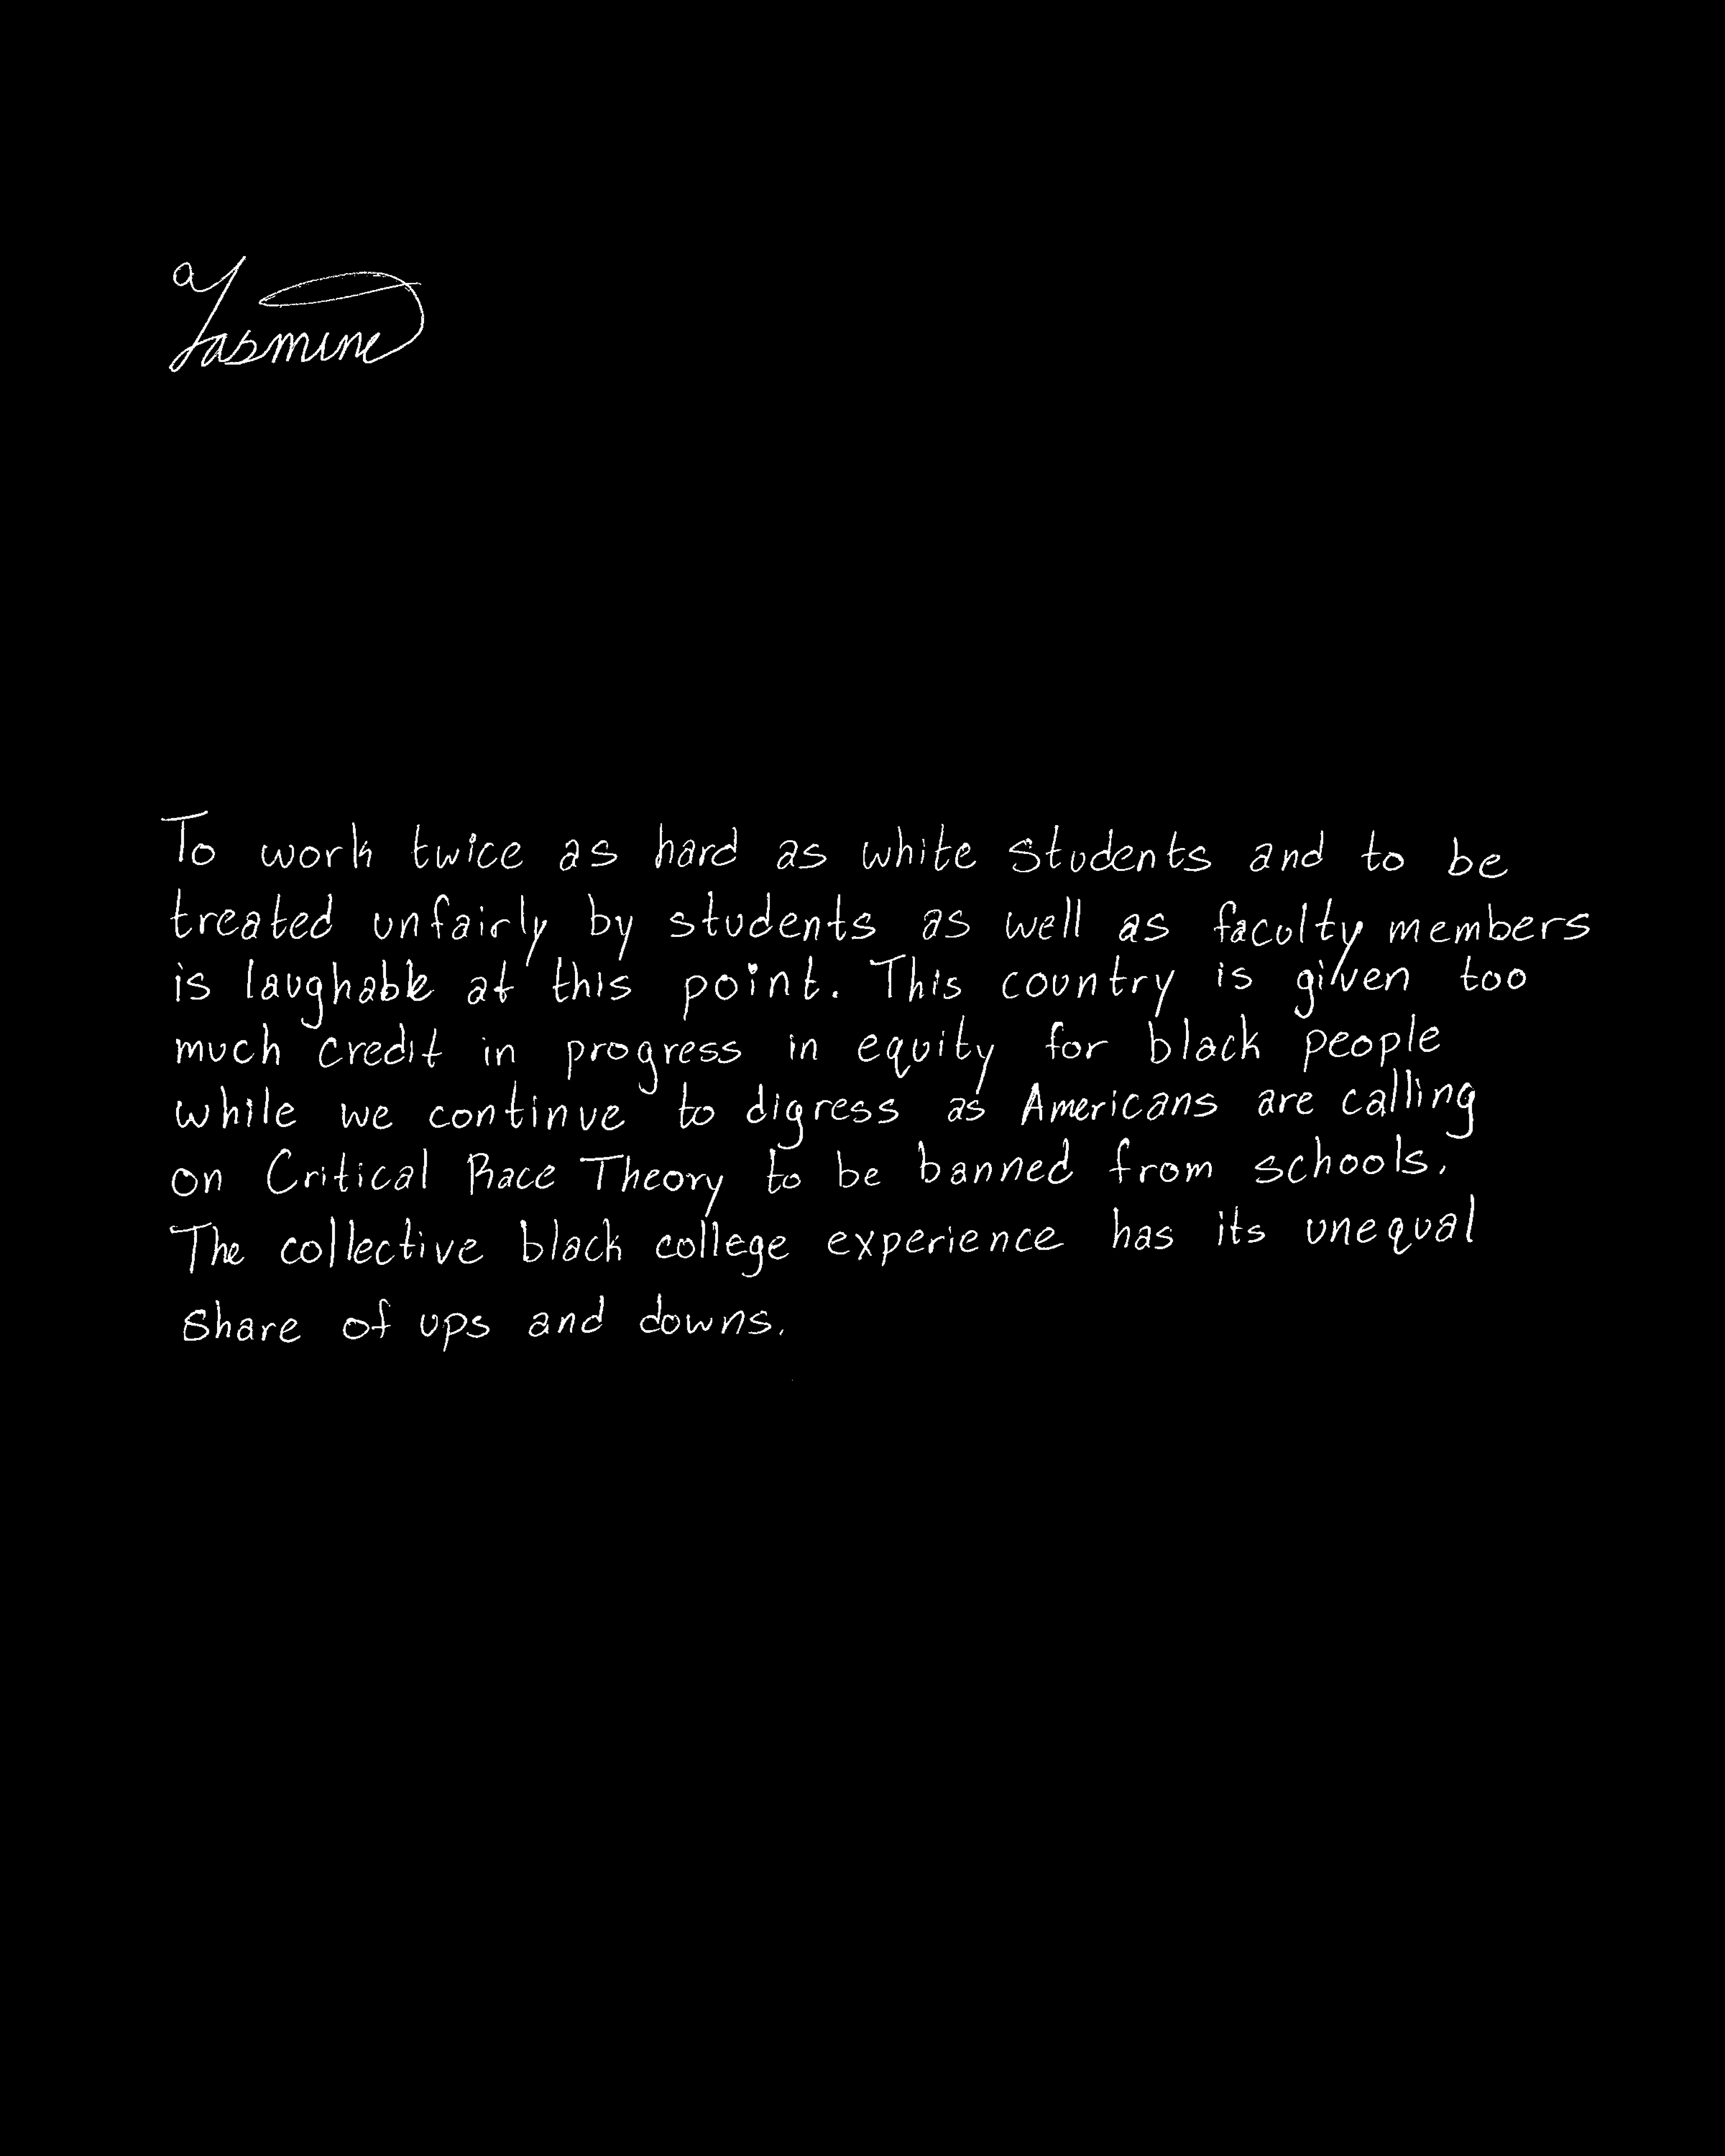 Yasmine
To work twice as hard as white students and to be
treated unfairly by students as well as faculty members
is laughable at this point. This country is given too
much credit in progress in equity for black people
while we continue to digress as Americans are calling
on Critical Race Theory to be banned from schools.
The collective black college experience has its unequal
share of ups and downs.